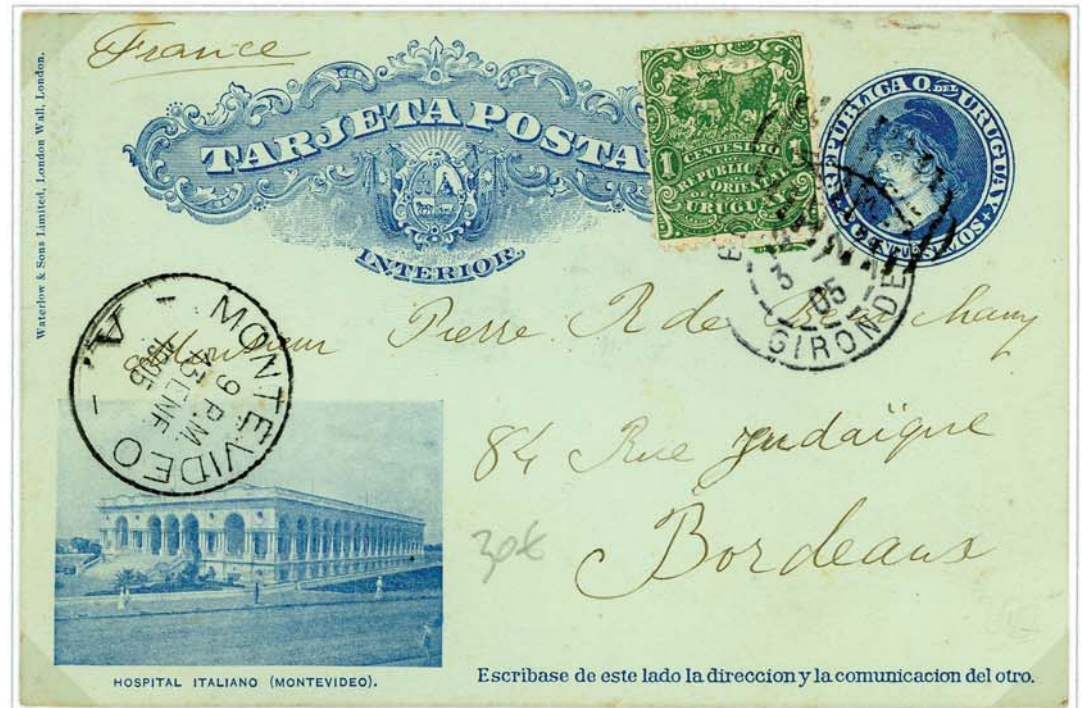 France
Waterlow & Sons Limited, London Wall, London.
TARJETA POSTA
INTERIOR.
1 CENTESIMO 1
REPUBLICA
ORIENTAL
URUGUAY
REPUBLICA O. DEL URUGUAY
GIRONDE
3
05
MONTEVIDEO
9 P.M.
13 ENE.
1905
A
Monsieur Pierre R de
84 Rue Judaïque
Bordeaux
30€
HOSPITAL ITALIANO (MONTEVIDEO).
Escribase de este lado la direccion y la comunicacion del otro.